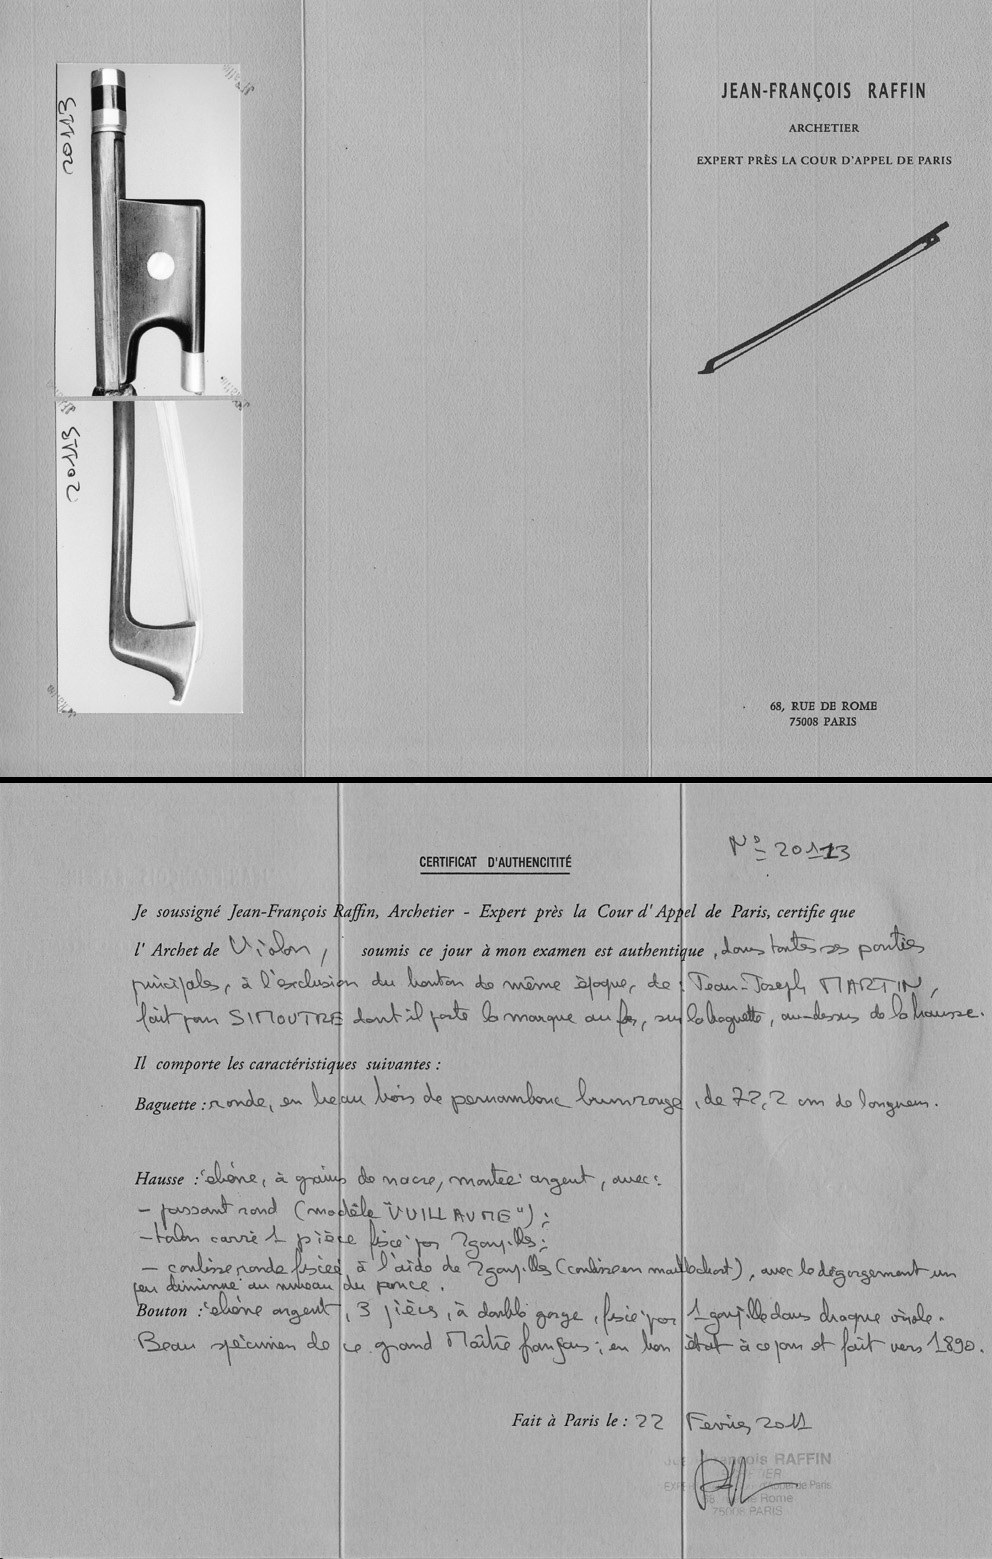 20113
20113
JEAN-FRANÇOIS RAFFIN
ARCHETIER
EXPERT PRÈS LA COUR D'APPEL DE PARIS
68, RUE DE ROME
75008 PARIS
Nº 20113
CERTIFICAT D'AUTHENCITITÉ
Je soussigné Jean-François Raffin, Archetier - Expert près la Cour d'Appel de Paris, certifie que
l'Archet de Violon, soumis ce jour à mon examen est authentique, dans toutes ses parties
principales, à l'exclusion du bouton de même époque, de : Jean-Joseph MARTIN,
fait pour SIMOUTRE dont il porte la marque au fer, sur la baguette, au-dessus de la hausse.
Il comporte les caractéristiques suivantes :
Baguette : ronde, en beau bois de pernambouc brun rouge, de 72,2 cm de longueur.
Hausse : ébène, à grains de nacre, montée argent, avec :
- passant rond (modèle "VUILLAUME") ;
- talon carré 1 pièce fixée par 2 goupilles ;
- coulisse ronde fixée à l'aide de 2 goupilles (coulisse en maillechort), avec le dégorgement un
peu diminué au niveau du pouce.
Bouton : ébène argent, 3 pièces, à double gorge, fixée par 1 goupille dans chaque virole.
Beau spécimen de ce grand Maître français ; en bon état à ce jour et fait vers 1890.
Fait à Paris le : 22 Février 2011
François RAFFIN
Rome
75008 PARIS